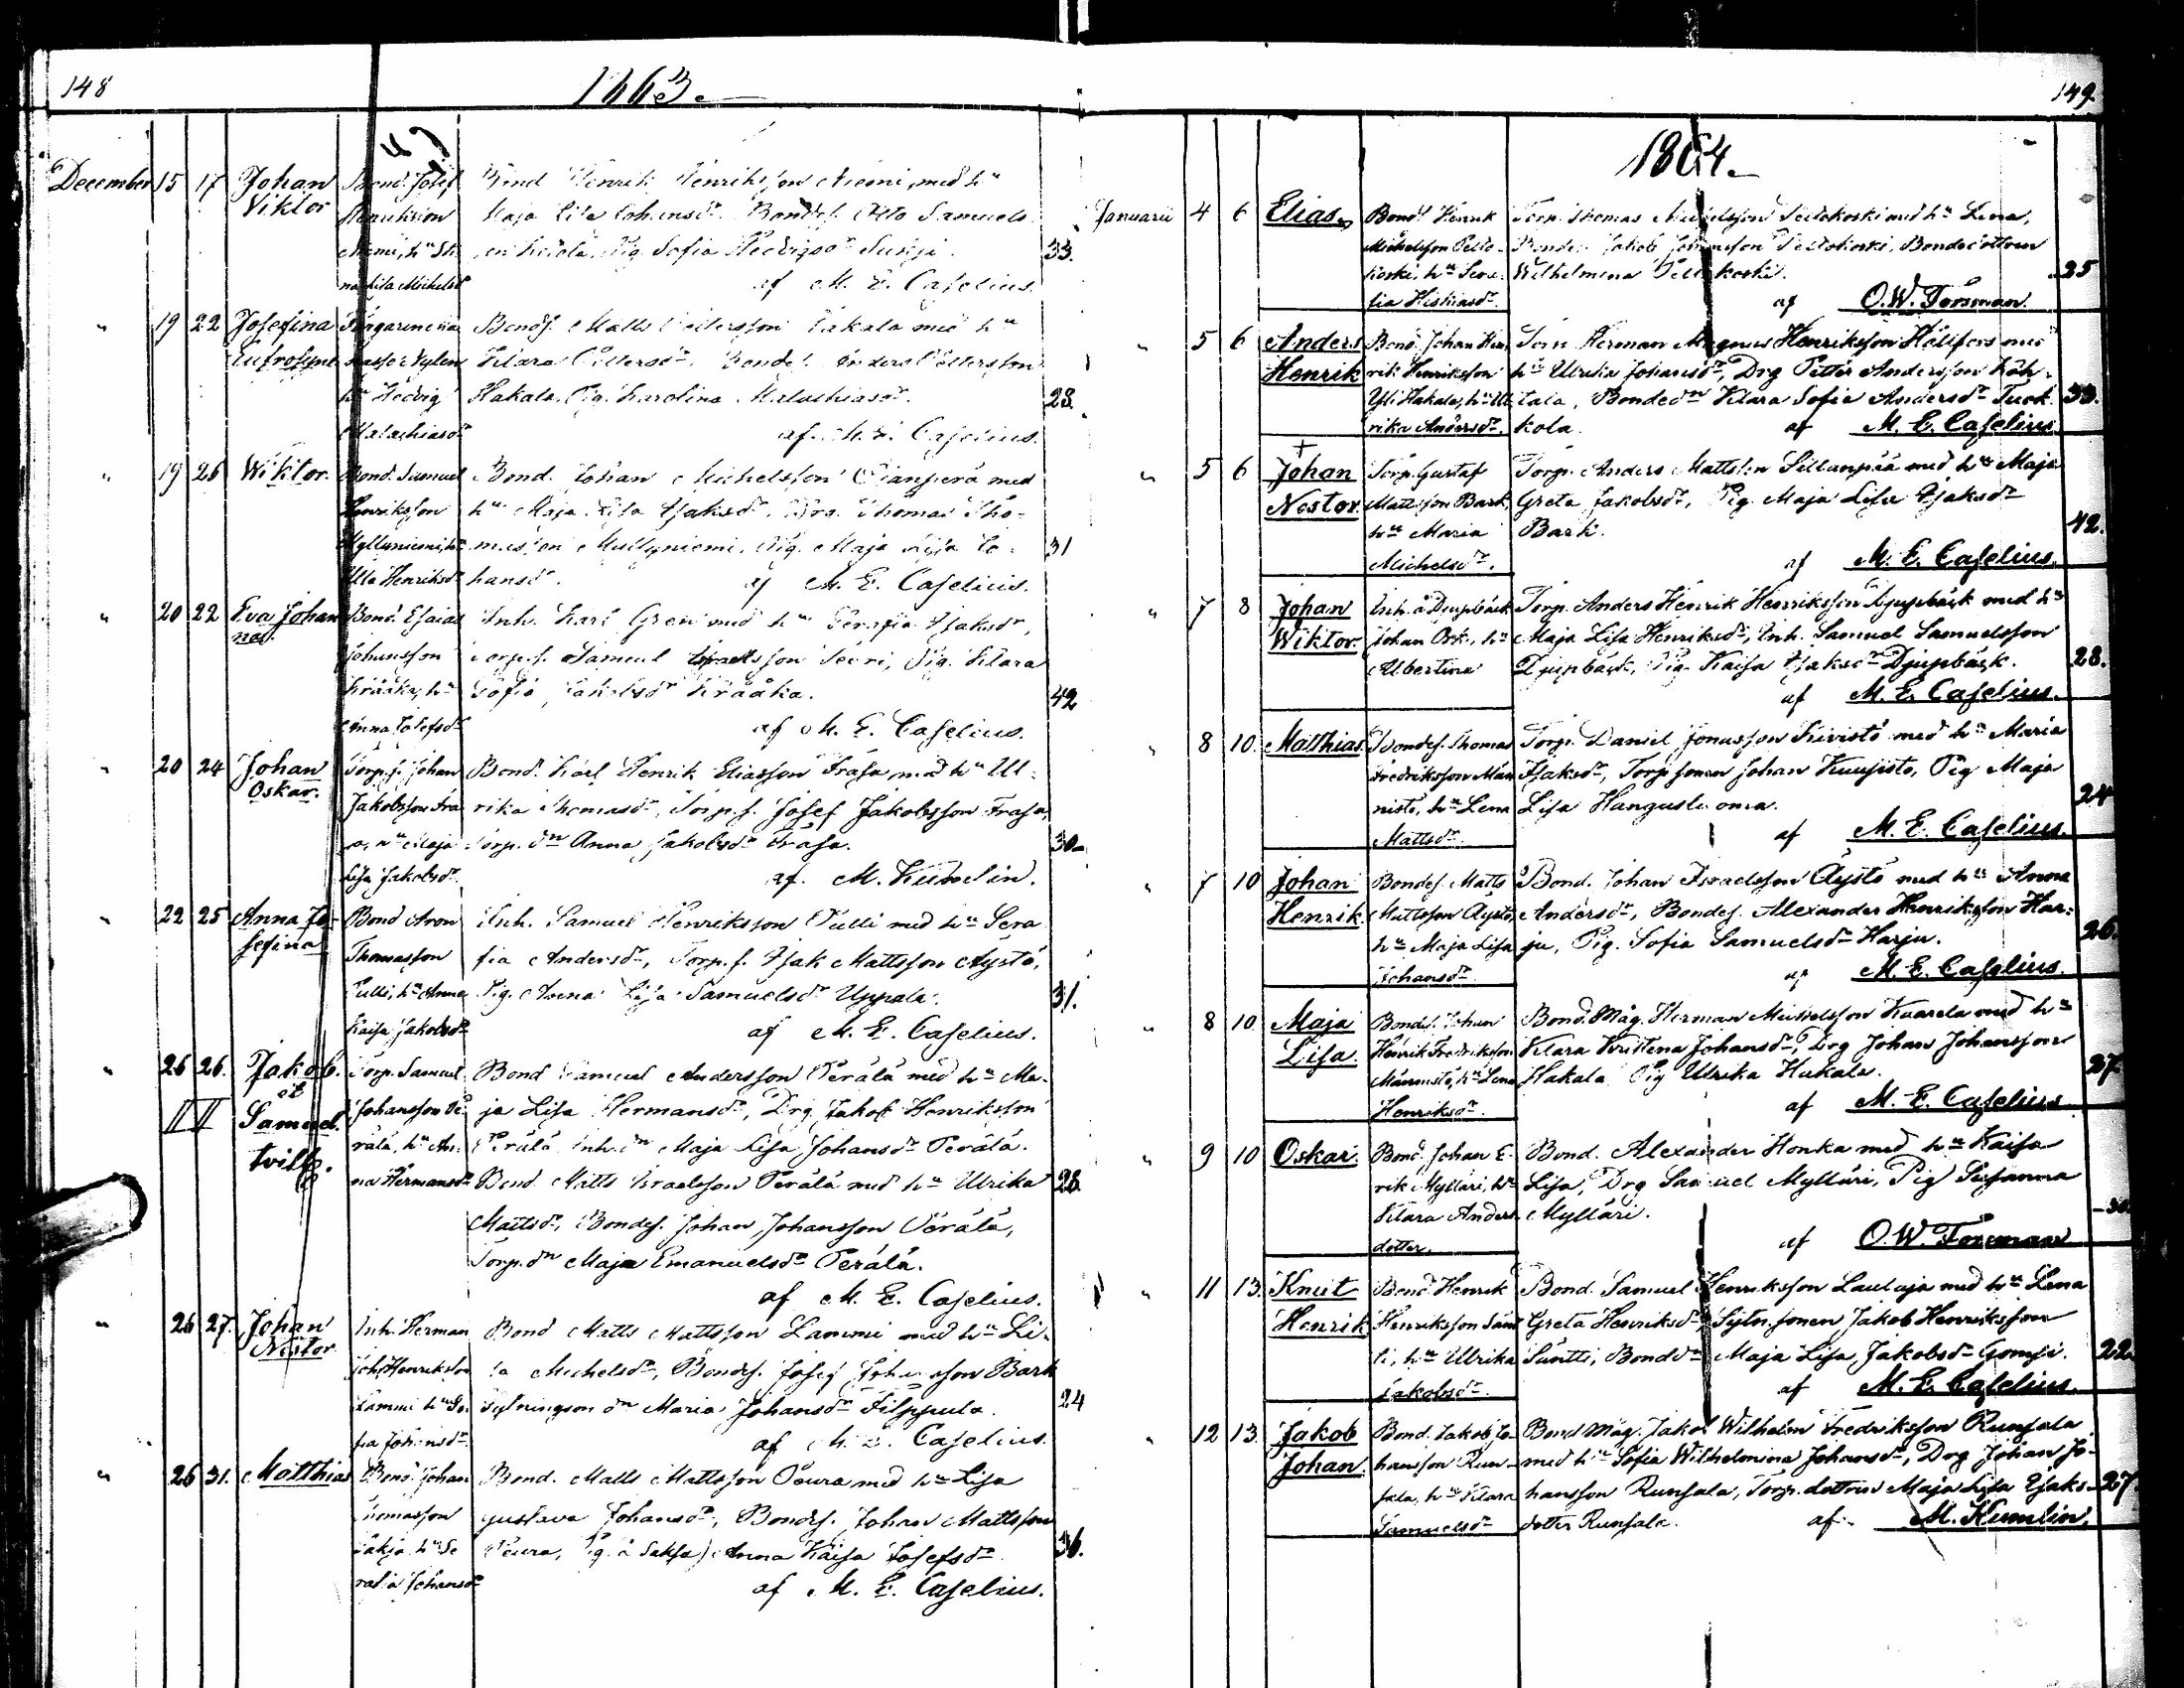 148
1863.
December 15 17 Johan Viktor
Bond. Josef Henriksson Niemi, hu
Bond Henrik Henriksson Niemi, med hu
Maja Lisa Johansdr. Bondes. Otto Samuels
Pig Sofia Hedvigsdr
33.
af M. E. Caselius.
" 19 22 Josefina Eufrosyne
Nylen hu Hedvig Malachiasdr
Bondes. Matts Pettersson Hakala med hu
Klara Pettersdr. Bondes. Anders Pettersson
Hakala. Pig. Karolina Malachiasdr.
23.
af M. E. Caselius.
" 19 26 Wiktor.
Bond. Samuel Henriksson Myllyniemi, hu Ulla Henriksdr
Bond. Johan Michelsson med
hu Maja Lisa Isaksdr. Drg. Thomas Tho-
masson Myllyniemi. Pig. Maja Lisa Jo-
hansdr.
31
af M. E. Caselius.
" 20 22 Eva Johanna
Bond. Esaias Johansson Krååka, hu Anna Josefsdr
Inh. Karl Gren med hu Serafia Isaksdr,
Torps. Samuel Israelsson Pig. Klara
Sofia Jakobsdr Krååka.
42
af M. E. Caselius.
" 20 24 Johan Oskar.
Torps. Johan Jakobsson Frasa, hu Maja Lisa Jakobsdr.
Bond. Karl Henrik Eliasson Frasa med hu Ul-
rika Thomasdr, Torps. Josef Jakobsson Frasa,
Torp. dn Anna Jakobsdr Frasa.
30
af M. Kumlin.
" 22 25 Anna Josefina
Bond Aron Thomasson Tulli, hu Anna Kaisa Jakobsdr
Inh. Samuel Henriksson Tulli med hu Sera
fia Andersdr, Torp. s. Isak Mattsson Aystö,
Pig. Anna Lisa Samuelsdr Uppala.
31.
af M. E. Caselius.
" 26 26. Jakob et Samuel tvill.
Torp. Samuel Johansson Perälä, hu Anna Hermansdr
Bond Samuel Andersson Perälä med hu Ma-
ja Lisa Hermansdr, Drg Jakob Henriksson
Perälä, Inh. dn Maja Lisa Johansdr Perälä.
Bond. Matts Israelsson Perälä med hu Ulrika
28.
Mattsdr, Bondes. Johan Johansson Perälä,
Torp. dn Maja Emanuelsdr Perälä.
af M. E. Caselius.
" 26 27. Johan Nestor
Inh. Herman Joh. Henriksson Lammi hu Sofia Johansdr.
Bond Matts Mattsson Lammi med hu Li-
sa Michelsdr, Bondes. Josef Johansson Bark
Sytningson dn Maria Johansdr Filppula.
24
af M. E. Caselius.
" 26 31. Matthias
Bond. Johan Thomasson hu Serafia Johansdr
Bond. Matts Mattsson Peura med hu Lisa
Gustava Johansdr, Bondes. Johan Mattsson
Peura, Pig. Anna Kaisa Josefsdr
36.
af M. E. Caselius.
149.
1864.
Januarii 4 6 Elias
Bond. Henrik Michelsson Peltokoski, hu Serafia Hiskiasdr.
Torp. Thomas Michelsson Peltokoski med hu Lena,
Bondes. Jakob Johansson Peltokoski, Bondedottren
Wilhelmina Peltokoski.
25
af O. W. Forsman.
" 5 6 Anders Henrik
Bond. Johan Henrik Henriksson Yli Hakala, hu Ulrika Andersdr.
Torp. Herman Magnus Henriksson Hållfors med
hu Ulrika Johansdr, Drg Petter Andersson Köh-
tala, Bondedn Klara Sofia Andersdr Tuok
kola.
33.
af M. E. Caselius
" 5 6 + Johan Nestor
Torp. Gustaf Mattsson Bark, hu Maria Michelsdr.
Torp. Anders Mattsson Sillanpää med hu Maja
Greta Jakobsdr, Pig Maja Lisa Isaksdr
Bark.
42.
af M. E. Caselius.
" 7 8 Johan Wiktor.
Inh. å Djupbäck Johan Ork., hu Albertina
Torp. Anders Henrik Henriksson Djupbäck med hu
Maja Lisa Henriksdr, Inh. Samuel Samuelsson
Djupbäck, Pig. Kaisa Isaksdr Djupbäck.
28.
af M. E. Caselius.
" 8 10. Matthias
Bondes. Thomas Fredriksson Männistö, hu Lena Mattsdr.
Torp. Daniel Jonasson Kivistö med hu Maria
Isaksdr, Torpsonen Johan Kuusisto, Pig Maja
Lisa Hangasluoma.
24
af M. E. Caselius.
" 7 10 Johan Henrik
Bondes. Matts Mattsson Aystö, hu Maja Lisa Johansdr.
Bond. Johan Israelsson Aystö med hu Anna
Andersdr, Bondes. Alexander Henriksson Har-
ju, Pig. Sofia Samuelsdr Harju.
26.
af M. E. Caselius.
" 8 10. Maja Lisa
Bondes. Johan Henrik Fredriksson Männistö, hu Lena Henriksdr.
Bond. Måg. Herman Michelsson Kaarela med hu
Klara Kristena Johansdr, Drg Johan Johansson
Hakala Pig Ulrika Hakala.
27.
af M. E. Caselius
" 9 10 Oskar
Bond. Johan Erik Mylläri, hu Klara Andersdotter.
Bond. Alexander Honka med hu Kaisa
Lisa, Drg Samuel Mylläri, Pig Susanna
Mylläri.
af O. W. Forsman
" 11 13. Knut Henrik
Bond Henrik Henriksson Säntti, hu Ulrika Jakobsdr.
Bond. Samuel Henriksson Laulaja med hu Lena
Greta Henriksdr, Sytn. sonen Jakob Henriksson
Säntti, Bonddn Maja Lisa Jakobsdr Gompi.
22.
af M. E. Caselius.
" 12 13. Jakob Johan
Bond. Jakob Johansson Runsala, hu Klara Samuelsdr
Bond Måg. Jakob Wilhelm Fredriksson Runsala
med hu Sofia Wilhelmina Johansdr, Drg Johan Jo-
hansson Runsala, Torp. dottren Maja Lisa Isaks-
dotter Runsala.
27
af M. Kumlin.